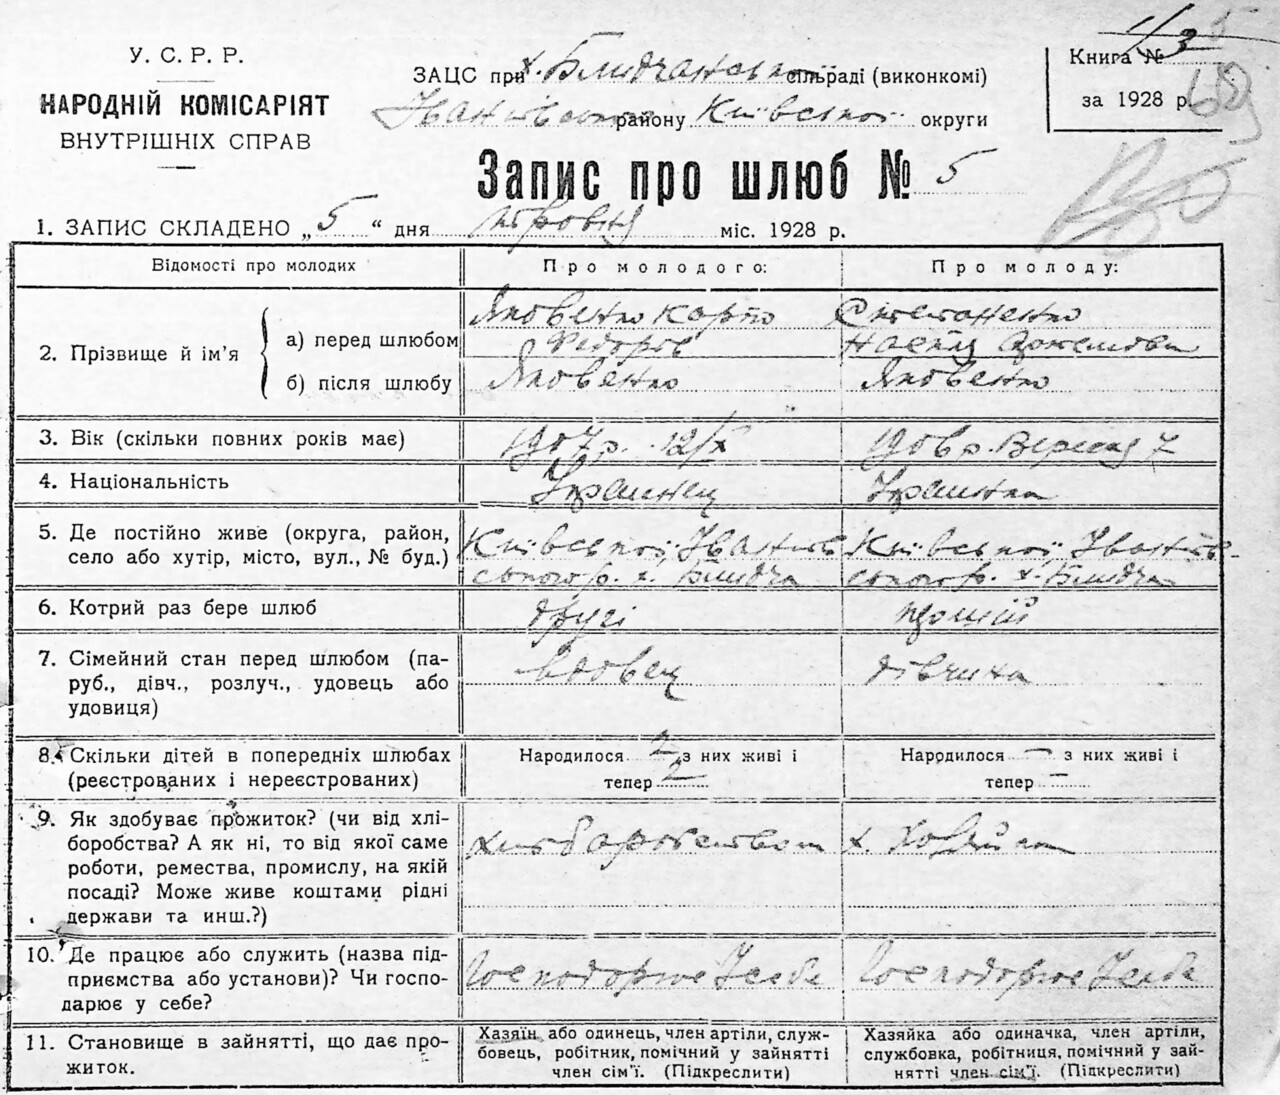 У. С. Р. Р.
НАРОДНІЙ КОМІСАРІЯТ
ВНУТРІШНІХ СПРАВ
ЗАЦС при х. Блидчанської сільраді (виконкомі)
району Київської округи
Книга №
за 1928 р.
Запис про шлюб № 5
1. ЗАПИС СКЛАДЕНО „5“ дня міс. 1928 р.
Відомості про молодих
Про молодого:
Про молоду:
2. Прізвище й ім'я
а) перед шлюбом
Яковенко Карпо
Федоров
Степаненко
б) після шлюбу
Яковенко
Яковенко
3. Вік (скільки повних років має)
1907 р. 12/X
Вересня 7
4. Національність
Українец
Українка
5. Де постійно живе (округа, район,
село або хутір, місто, вул., № буд.)
Київської, Іванків-
ського р. х. Блидча
Київської, Іванків-
ського р. х. Блидча
6. Котрий раз бере шлюб
другі
7. Сімейний стан перед шлюбом (па-
руб., дівч., розлуч., удовець або
удовиця)
вдовец
дівчина
8. Скільки дітей в попередніх шлюбах
(реєстрованих і нереєстрованих)
Народилося 2 з них живі і
тепер 2
Народилося — з них живі і
тепер —
9. Як здобуває прожиток? (чи від хлі-
боробства? А як ні, то від якої саме
роботи, ремества, промислу, на якій
посаді? Може живе коштами рідні
держави та инш.?)
хліборобством
10. Де працює або служить (назва під-
приємства або установи)? Чи госпо-
дарює у себе?
Господорює У себе
Господорює У себе
11. Становище в зайнятті, що дає про-
житок.
Хазяїн, або одинець, член артілі, служ-
бовець, робітник, помічний у зайнятті
член сім'ї. (Підкреслити)
Хазяйка або одиначка, член артілі,
службовка, робітниця, помічний у зай-
нятті член сім'ї. (Підкреслити)